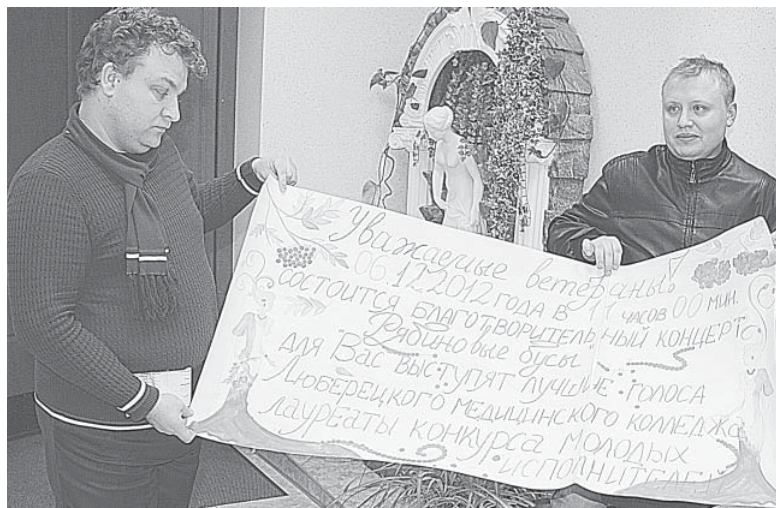 Уважаемые ветераны!
06.12.2012 года в 11 часов 00 мин.
состоится благотворительный концерт
Рябиновые бусы
для Вас выступят лучшие голоса
Люберецкого медицинского колледжа
лауреаты конкурса молодых
исполнителей